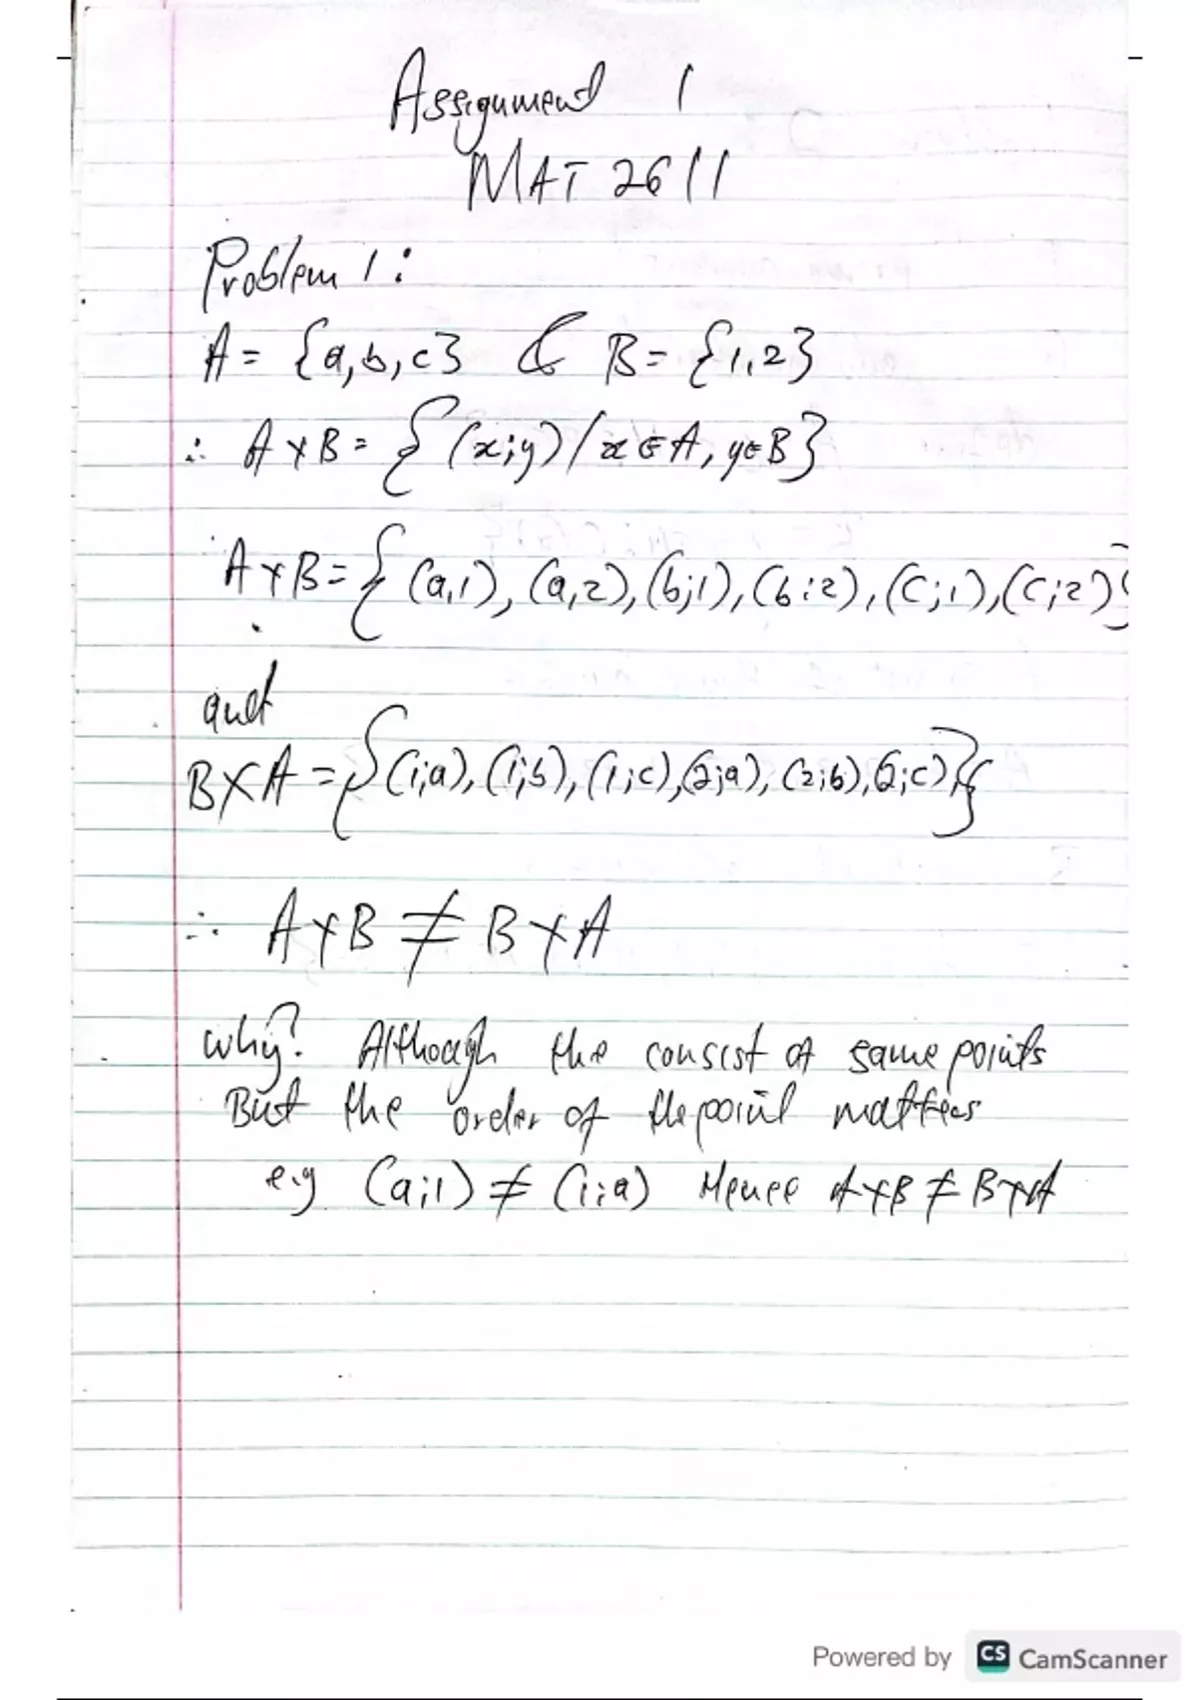 Assignment 1
MAT 2611
Problem 1:
A = {a,b,c} & B = {1,2}
∴ A×B = {(x;y)/x∈A, y∈B}
A×B = {(a,1), (a,2), (b;1), (b:2), (c;1), (c;2)}
and
B×A = {(1;a), (1;b), (1;c), (2;a), (2;b), (2;c)}
∴ A×B ≠ B×A
Why? Although the consist of same points
But the order of the point matters
e.g (a;1) ≠ (1;a) Hence A×B ≠ B×A
Powered by CS CamScanner